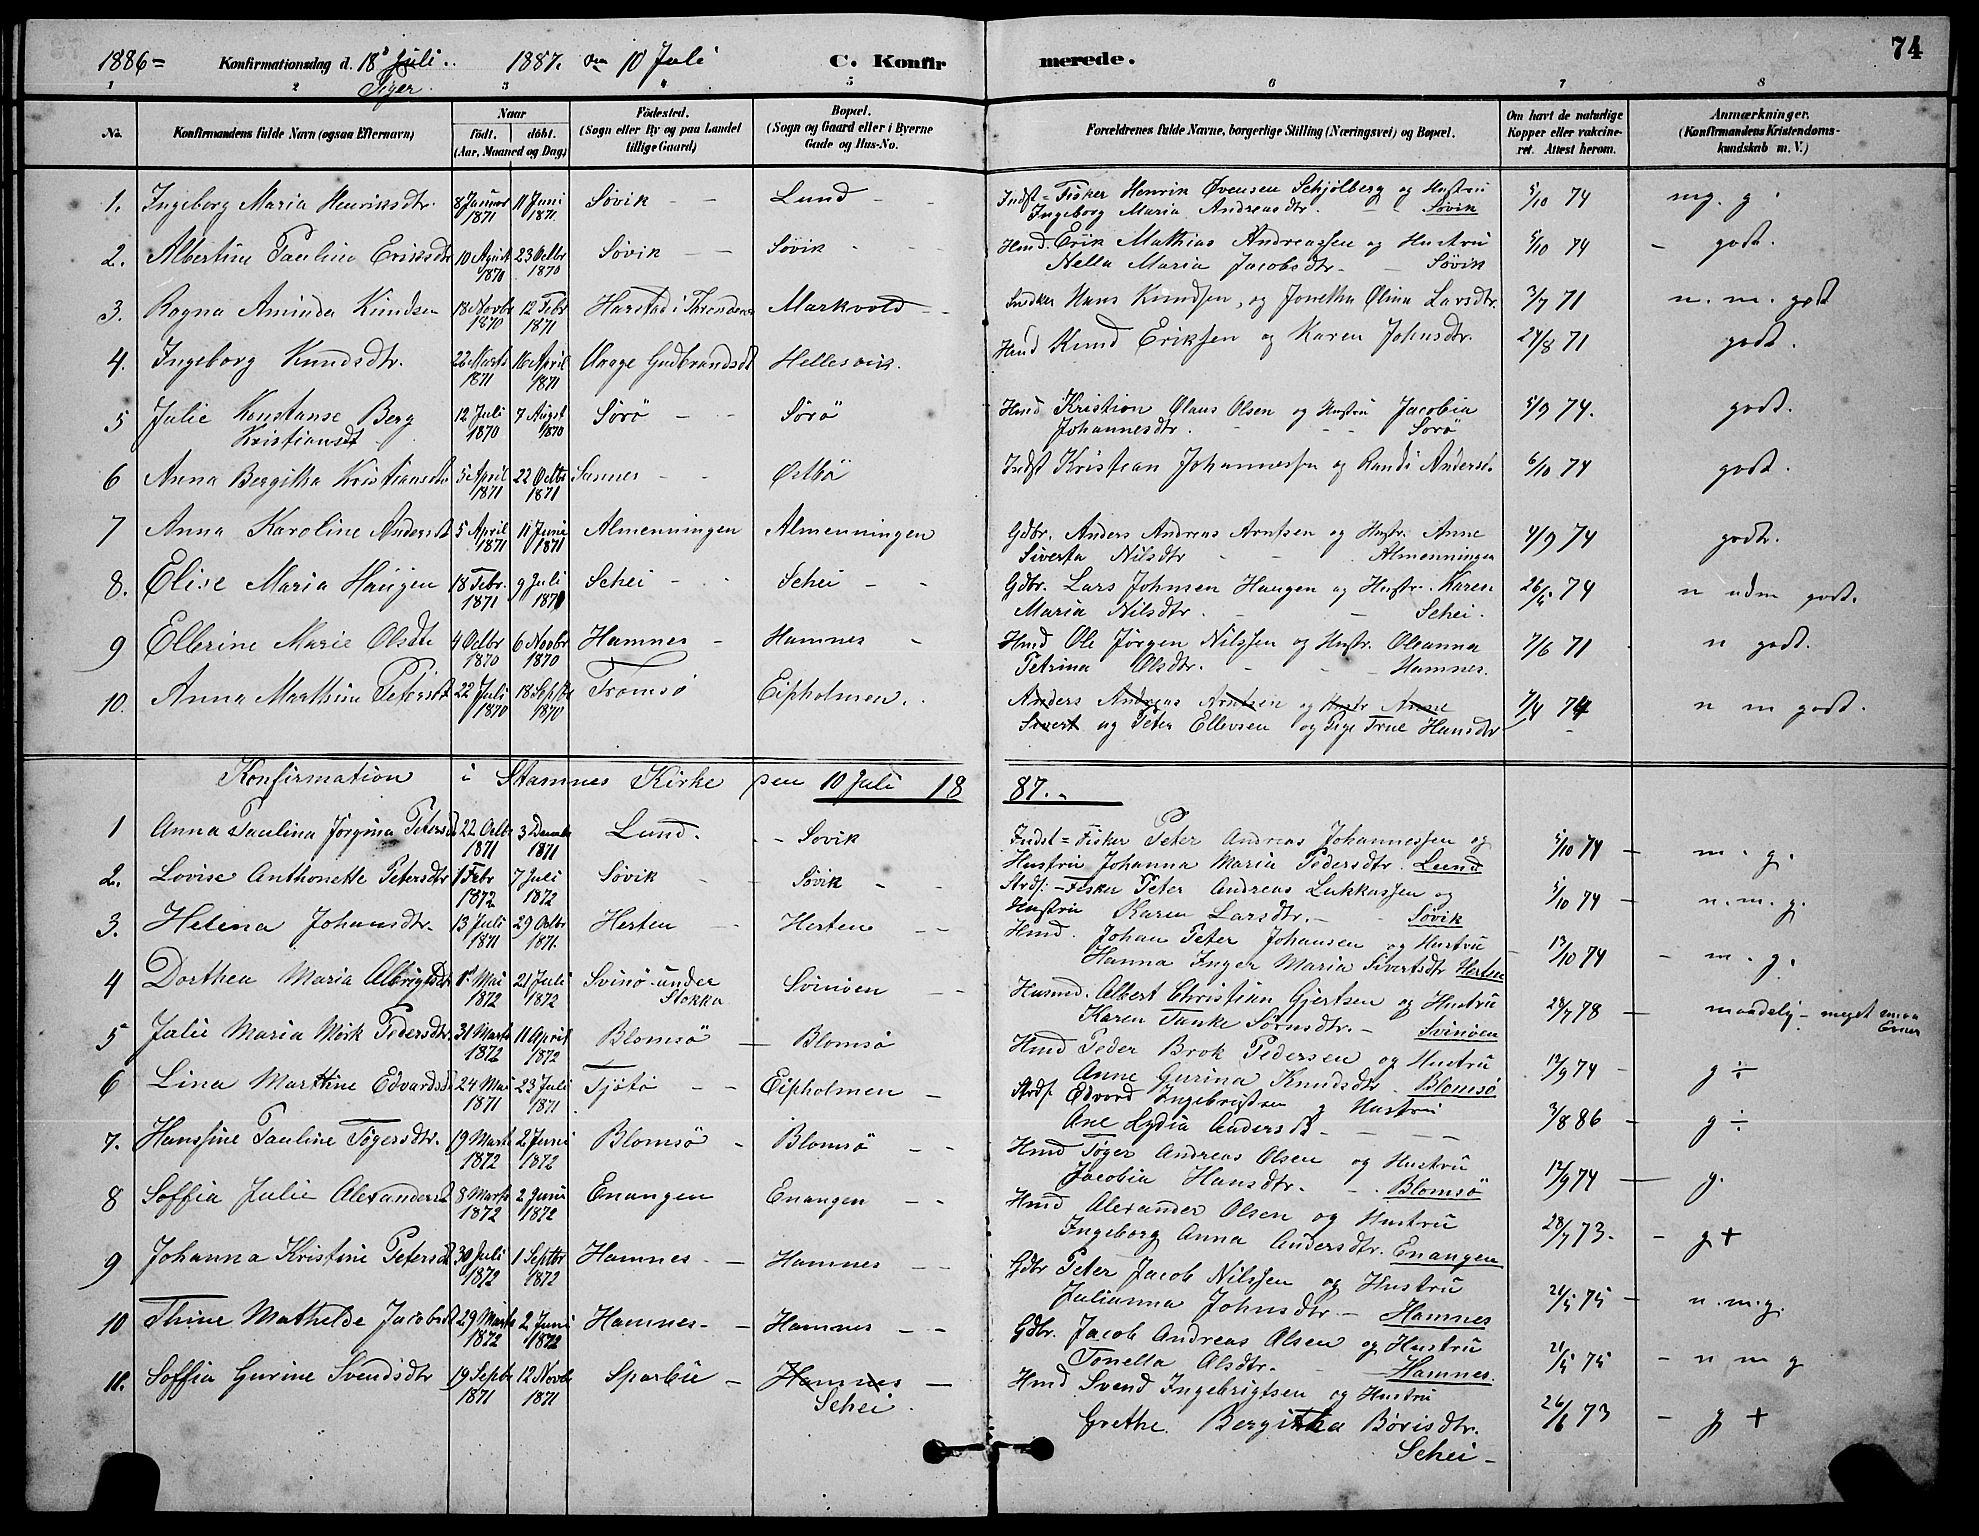 74
1886 = Konfirmationsdag d. 18de Juli. 1887. den 10 Juli C. Konfirmerede.
Piger
1 2 3 4 5 6 7 8
No. Konfirmandens fulde Navn (ogsaa Efternavn) Naar födt. döbt. (Aar, Maaned og Dag) Födested. (Sogn eller By og paa Landet tillige Gaard) Bopæl. (Sogn og Gaard eller i Byerne Gade og Hus-No. Forældrenes fulde Navne, borgerlige Stilling (Næringsvei) og Bopæl. Om havt de naturlige Kopper eller vakcineret. Attest herom. Anmærkninger. (Konfirmandens Kristendomskundskab m. V.)
1. Ingeborg Maria Henriksdtr. 8 Januar 1871 11 Juni 1871 Søvik - - Lund - - Indst = Fisker Henrik Øvensen Schjølberg og Hustru 5/10 74 mg. g.
Ingeborg Maria Andreasdtr. - - Søvik
2. Albertine Paulina Eriksdtr 10 August 1870 23 Octbr 1870 Søvik - - Søvik - - Hmd. Erik Mathias Andreassen og Hustru 5/10 74 - godt.
Nella Maria Jacobsdtr. - - Søvik
3. Ragna Aminda Knudsen 18 Novbr 1870 12 Febr 1871 Harstad i Throndenes Markvold - - Hans Knudsen, og Jonetha Olina Larsdtr. 3/7 71 n. m. godt
4. Ingeborg Knudsdtr. 22 Marts 1871 16 April 1871 Vaage Gudbrandsdl Hellesvik. Hmd Knud Eriksen og Karen Johnsdtr. 24/8 71 godt.
5 Julie Konstanse Berg 12 Juli 1870 7 August 1870 Sörö - - Sörö Hmd Kristian Olaus Olsen og Hustru Jacobia 5/9 74. godt.
Kristiansdt Johannesdtr. - - - Sorö
6 Anna Bergitha Kristiansdtr 5 April 1871 22 Octbr 1871 Sannes - - Østbö Indst Kristian Johannessen og Randi Andersd. 6/10 74 godt.
7 Anna Karoline Andersdt 5 April 1871 11 Junie 1871 Almenningen Almenningen Gdbr. Anders Andreas Arntsen og Hustr. Anne 4/9 74 godt.
Siverta Nilsdtr - - Almenningen
8. Elise Maria Haugen 18 Febr. 1871 9 Juli 1871 Schei - - Schei - - Gdbr. Lars Johnsen Haugen og Hustr. Karen 26/5 74 n udm godt.
Maria Nilsdtr. - - Schei.
9 Ellerine Marie Olsdtr 4 Octbr 1870 6 Novbr 1870 Hamnes - Hamnes - Hmd Ole Jørgen Nilssen og Hustr. Oleanna 7/6 71 n godt.
Petrina Olsdtr. - - Hamnes.
10. Anna Marthina Petersdt 22 Juli 1870 18 Septbr 1870 Tromsö Eipholmen. Anders Andreas Arntsen og Hustr Anne 7/4 74 n m godt.
Sivert og Peter Ellevsen og Pige Trine Hansdtr
Konfirmation i Stamnes Kirke den 10 Juli 1887.
1 Anna Paulina Jörgina Petersdt 22 Octbr 1871 3 Decembr 1871 Lund. - Sovik Indst = Fisker Peter Andreas Johannessen og 5/10 74 - m. g.
Hustru Johanna Maria Pedersdtr. Lund
2. Lovise Anthonette Petersdtr 1 Febr 1872 7 Juli 1872 Søvik - Søvik - - Strds: - Fisker Peter Andreas Lukkassen og 5/10 74 - n. m. g.
Hustru Karen Larsdtr. - - Søvik
3. Helena Johansdtr. 13 Juli 1871 29 Octbr 1871. Herten - Herten - - Hmd. Johan Peter Johansen og Hustru 13/10 74 - m. g.
Hanna Inger Maria Sivertsdtr Herten
4 Dorthea Maria Albrigtsdtr 1st Mai 1872 21 Juli 1872 Svinö under Stokka Svinöen - - Husmd. Albert Christian Gjertsen og Hustru 28/7 78 - maadelig - meget smaa Evner
Karen Tanke Sörnsdtr. - Svinöen
5 Julie Maria Mörk Pedersdtr. 31 Marts 1872 11 April 1872 Blomsö - Blomsö Hmd Peder Brok Pedersen og Hustru 12/9 74 - g ÷
Anne Gurina Knudsdtr. Blomsö
6 Lina Martine Edvardsdt 24 Mai 1871 23 Juli 1871. Tjötö - - Eipholmen - Strds. Edvard Ingebrigtsen og Hustru 3/8 86 - g ÷
Ane Lydia Andersdt. - - -
7. Hansine Pauline Tögersdtr. 19 Marts 1872 2 Juni 1872 Blomsö - Blomsö - - Hmd Töger Andreas Olsen og Hustru 12/9 74 - g.
Jacobia Hansdtr. - - Blomsö
8 Soffia Julie Alexandersdt 8 Marts 1872 2 Juni 1872 Enangen Enangen - - Hmd Alexander Olsen og Hustru 28/7 73. - g +
Ingeborg Anna Andersdtr. Enangen
9 Johanna Kristine Petersdt 30 Juli 1872 1 Septbr 1872 Hamnes - - Hamnes - - Gdbr Peter Jacob Nilssen og Hustru 21/5 75 - n. m. g.
Julianna Johnsdtr - Hamnes
10 Thine Mathelde Jacobsdt 29 Marts 1872 2 Juni 1872 Hamnes - - Hamnes - - Gdbr. Jacob Andreas Olsen og Hustru 21/5 75 - n m g
Tonetta Olsdtr. - Hamnes.
11. Soffia Gurine Svendsdtr 19 Septbr 1871 12 Novbr 1871 Sparbu - Hamnes - Schei. Hmd Svend Ingebrigtsen og Hustru 26/6 73 - g +
Grethe Bergitha Börisdtr.
Schei -